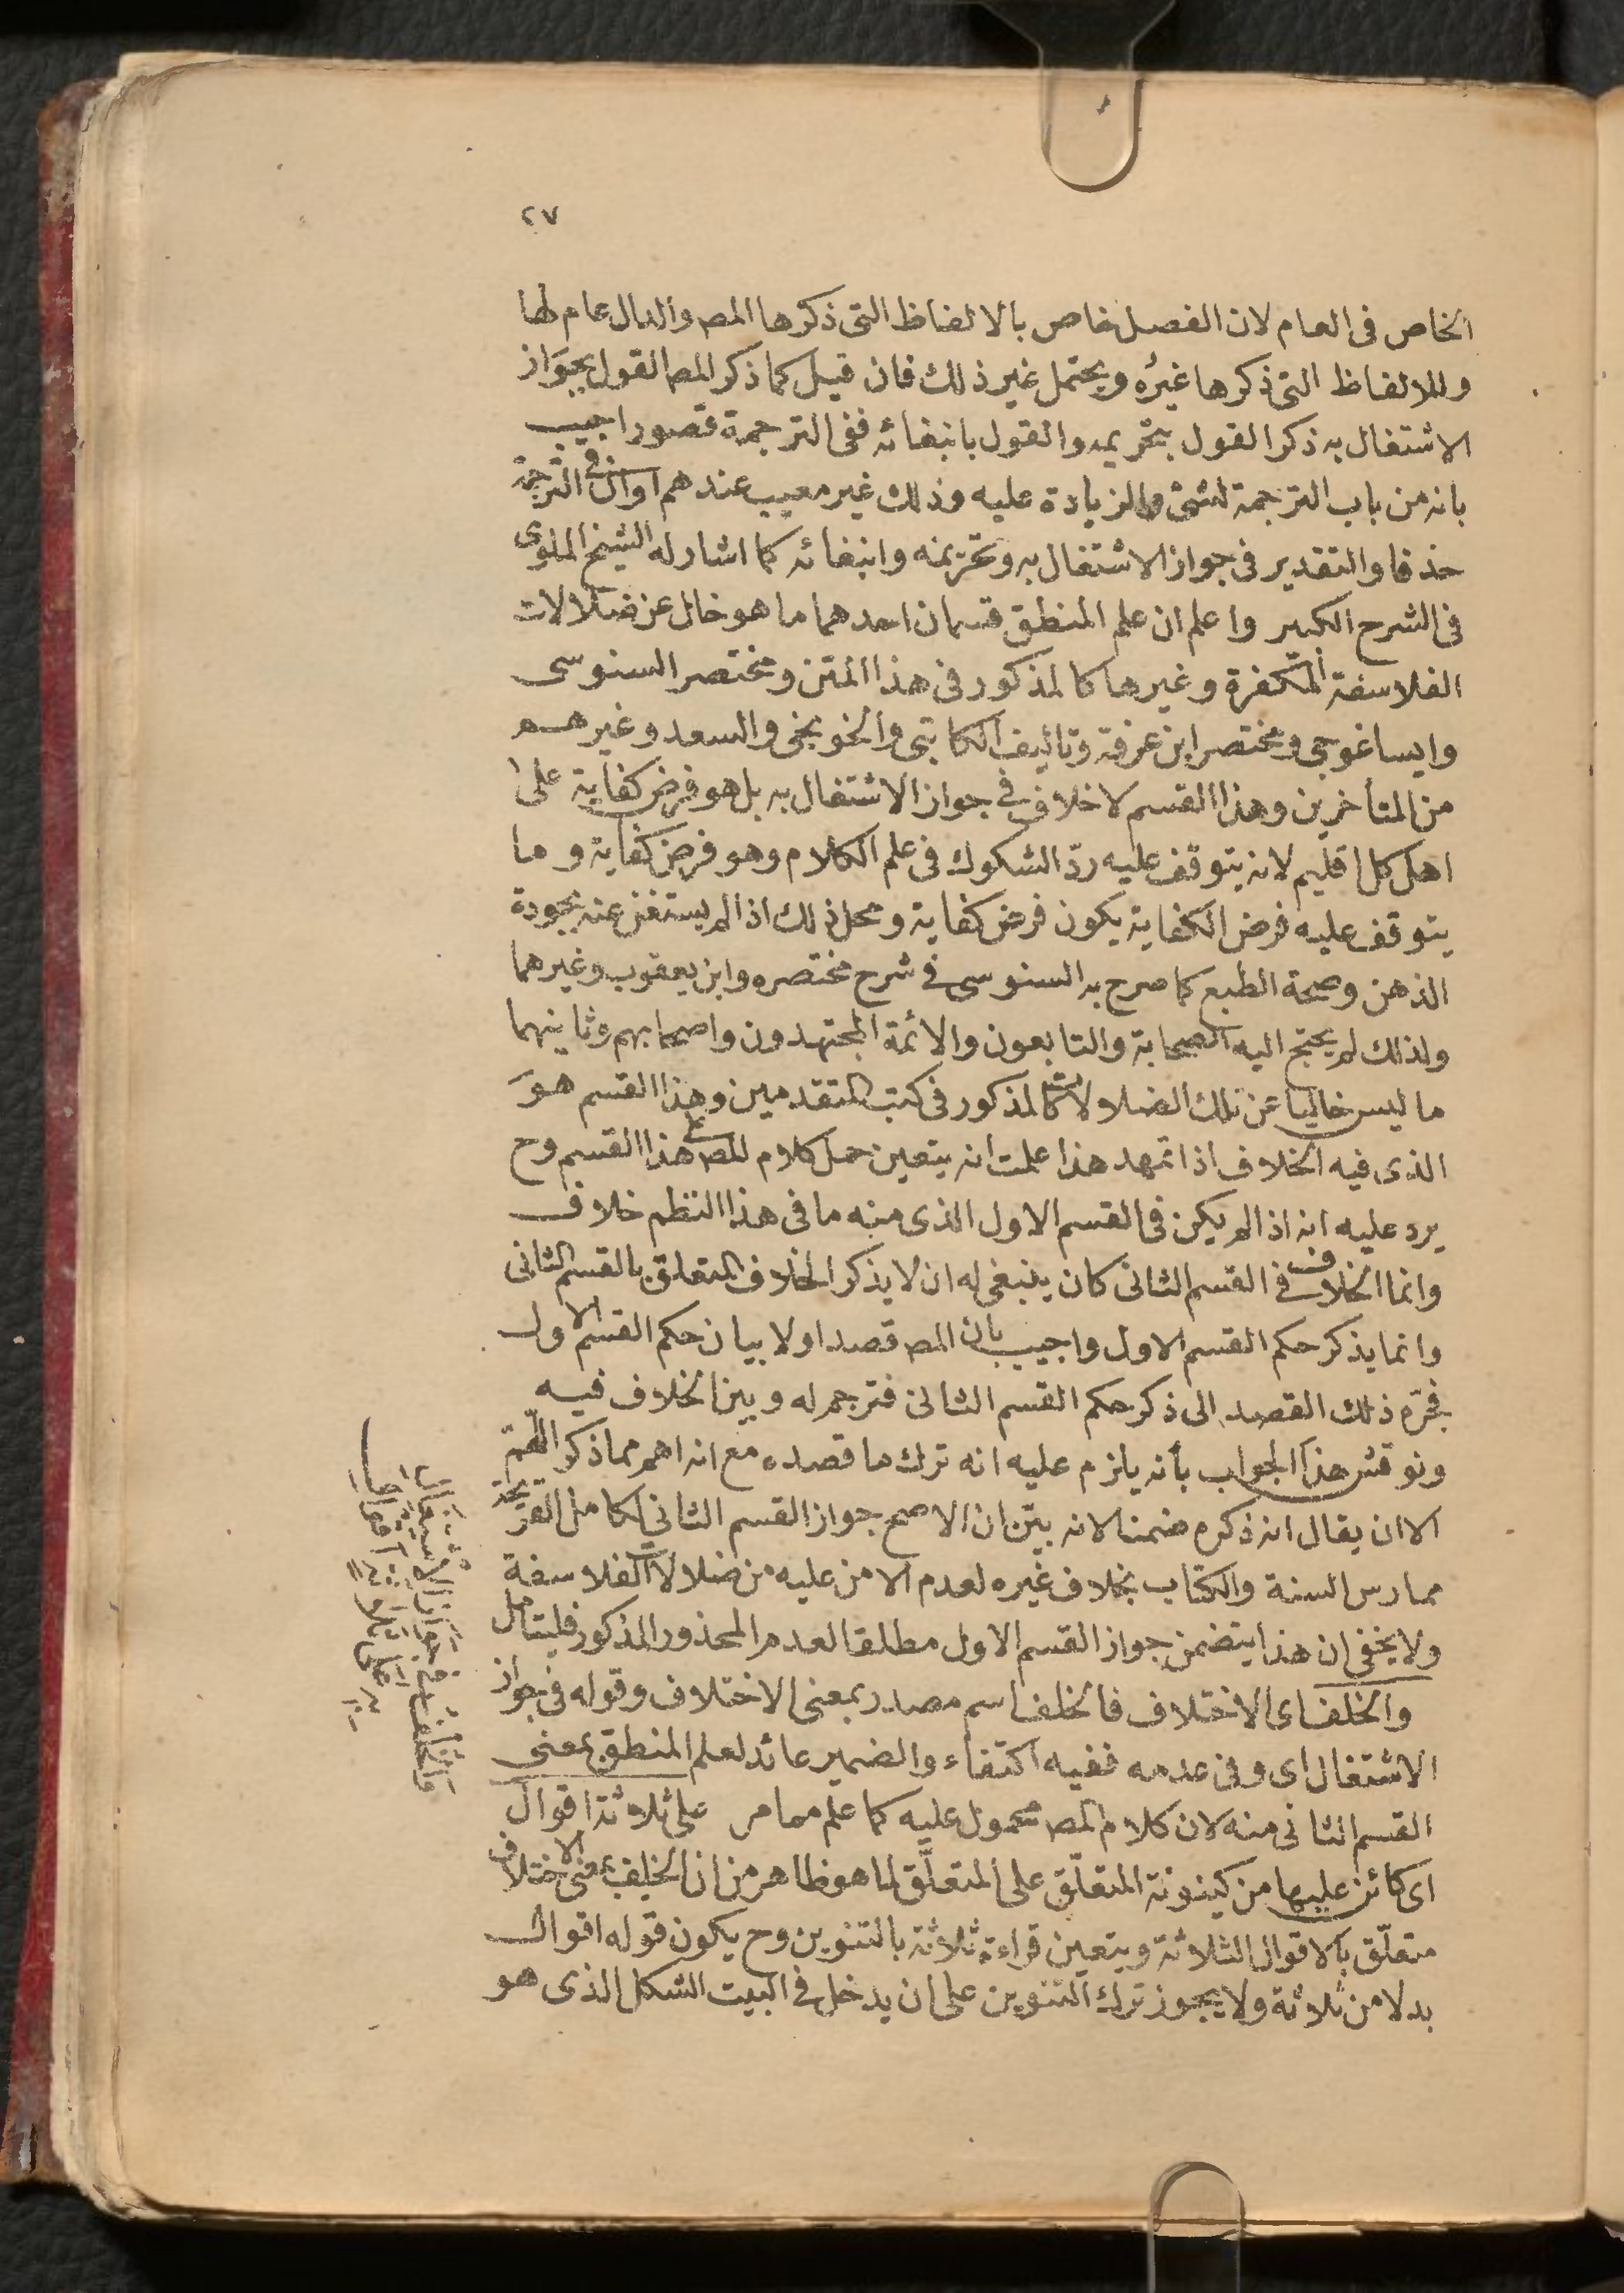 ٢٧
الخاص فى العام لان الفصل خاص بالالفاظ التى ذكرها المص والدال عام لها
وللالفاظ التى ذكرها غيره ويحتمل غير ذلك فان قيل كما ذكر المص القول بجواز
الاشتغال به ذكر القول بتحريمه والقول بانبغائه ففى الترجمة قصور اجيب
بانه من باب الترجمة لشئ والزيادة عليه وذلك غير معيب عندهم اوان فى الترجمة
حذفا والتقدير فى جواز الاشتغال به وتحريمه وانبغائه كما اشار له الشيخ الملوى
فى الشرح الكبير واعلم ان علم المنطق قسمان احدهما ما هو خال عن ضلالات
الفلاسفة المكفرة وغيرها كالمذكور فى هذا المتن ومختصر السنوسى
وايساغوجى ومختصر ابن عرفة وتأليف الكاتبى والخونجى والسعد وغيرهم
من المتأخرين وهذا القسم لا خلاف فى جواز الاشتغال به بل هو فرض كفاية على
اهل كل اقليم لانه يتوقف عليه ردّ الشكوك فى علم الكلام وهو فرض كفاية وما
يتوقف عليه فرض الكفاية يكون فرض كفاية ومحل ذلك اذا لم يستغن عنه بجودة
الذهن وصحة الطبع كما صرح به السنوسى فى شرح مختصره وابن يعقوب وغيرهما
ولذلك لم يحتج اليه الصحابة والتابعون والائمة المجتهدون واصحابهم وثانيهما
ما ليس خاليا عن تلك الضلالات كالمذكور فى كتب المتقدمين وهذا القسم هو
الذى فيه الخلاف اذا تمهد هذا علمت انه يتعين حمل كلام المص على هذا القسم وح
يرد عليه انه اذا لم يكن فى القسم الاول الذى منه ما فى هذا النظم خلاف
وانما الخلاف فى القسم الثانى كان ينبغى له ان لا يذكر الخلاف المتعلق بالقسم الثانى
وانما يذكر حكم القسم الاول واجيب بان المص قصد اولا بيان حكم القسم الاول
فجره ذلك القصد الى ذكر حكم القسم الثانى فترجم له وبين الخلاف فيه
ونوقش هذا الجواب بأنه يلزم عليه انه ترك ما قصده مع انه اهم مما ذكر اللهم
الا ان يقال انه ذكره ضمنا لانه بيّن ان الاصح جواز القسم الثانى لكامل القريحة
ممارس السنة والكتاب بخلاف غيره لعدم الامن عليه من ضلالات الفلاسفة
ولا يخفى ان هذا يتضمن جواز القسم الاول مطلقا لعدم المحذور المذكور فليتأمل
والخلف اى الاختلاف فالخلف اسم مصدر بمعنى الاختلاف وقوله فى جواز
الاشتغال اى وفى عدمه ففيه اكتفاء والضمير عائد لعلم المنطق بمعنى
القسم الثانى منه لان كلام المص محمول عليه كما علم مما مر على ثلاثة اقوال
اى كائن عليها من كينونة المتعلّق على المتعلَّق لما هو ظاهر من ان الخلف بمعنى الاختلاف
متعلّق بالاقوال الثلاثة ويتعين قراءة ثلاثة بالتنوين وح يكون قوله اقوال
بدلا من ثلاثة ولا يجوز ترك التنوين على ان يدخل فى البيت الشكل الذى هو
والخلف فى جواز الاشتغال
به على ثلاثة اقوال